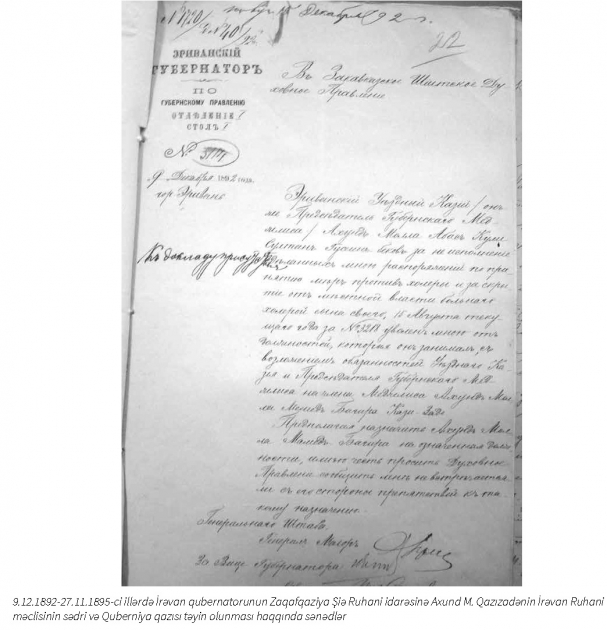 № 1720
Декабря 92 г.
212
ЭРИВАНСКІЙ
ГУБЕРНАТОРЪ
ПО
ГУБЕРНСКОМУ ПРАВЛЕНІЮ
ОТДѢЛЕНІЕ I
СТОЛЪ I
№
9 Декабря 1892 года.
гор. Эривань
Въ Закавказское Шіитское Ду-
ховное Правленіе
Къ докладу присутствія
Эриванскій Уѣздный Казій / онъ
же Предсѣдатель Губернскаго Мед-
жлиса / Ахундъ Молла Абасъ Кули
Султанъ за не исполненіе
сдѣланныхъ мною распоряженій по при-
нятію мѣръ противъ холеры и за скры-
тіе отъ мѣстной власти больного
холерой сына своего, 15 Августа теку-
щаго года за № уволенъ мною отъ
должностей, которыя онъ занималъ, съ
возложеніемъ обязанностей Уѣзднаго Ка-
зія и Предсѣдателя Губернскаго Мед-
жлиса на члена Меджлиса Ахунда Мол-
ла Мамедъ Багира Кази-Заде.
Предполагая назначить Ахунда Мол-
ла Мамедъ Багира на означенныя долж-
ности, имѣю честь просить Духовное
Правленіе сообщить мнѣ не встрѣчается-
ли съ его стороны препятствій къ та-
кому назначенію.
Генеральнаго Штаба
Генералъ Маіоръ
За Вице Губернатора
9.12.1892-27.11.1895-ci illərdə İrəvan qubernatorunun Zaqafqaziya Şiə Ruhani idarəsinə Axund M. Qazızadənin İrəvan Ruhani
məclisinin sədri və Quberniya qazısı təyin olunması haqqında sənədlər